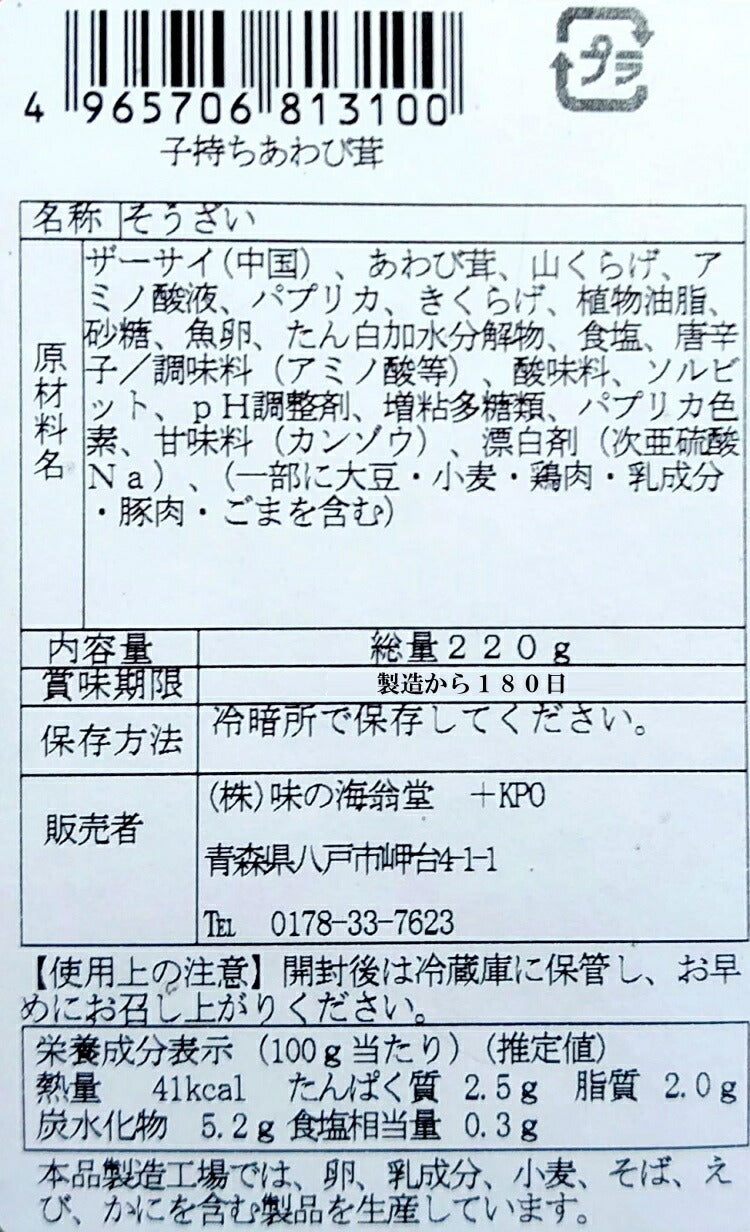 プラ
4 965706 813100
子持ちあわび茸
名称 そうざい
原材料名
ザーサイ(中国)、あわび茸、山くらげ、ア
ミノ酸液、パプリカ、きくらげ、植物油脂、
砂糖、魚卵、たん白加水分解物、食塩、唐辛
子／調味料（アミノ酸等）、酸味料、ソルビ
ット、ｐＨ調整剤、増粘多糖類、パプリカ色
素、甘味料（カンゾウ）、漂白剤（次亜硫酸
Ｎａ）、(一部に大豆・小麦・鶏肉・乳成分
・豚肉・ごまを含む)
内容量 総量２２０ｇ
賞味期限 製造から１８０日
保存方法 冷暗所で保存してください。
販売者 (株)味の海翁堂 ＋KPO
青森県八戸市岬台4-1-1
℡ 0178-33-7623
【使用上の注意】開封後は冷蔵庫に保管し、お早
めにお召し上がりください。
栄養成分表示（100ｇ当たり）(推定値)
熱量 41kcal たんぱく質 2.5ｇ 脂質 2.0ｇ
炭水化物 5.2ｇ 食塩相当量 0.3ｇ
本品製造工場では、卵、乳成分、小麦、そば、え
び、かにを含む製品を生産しています。